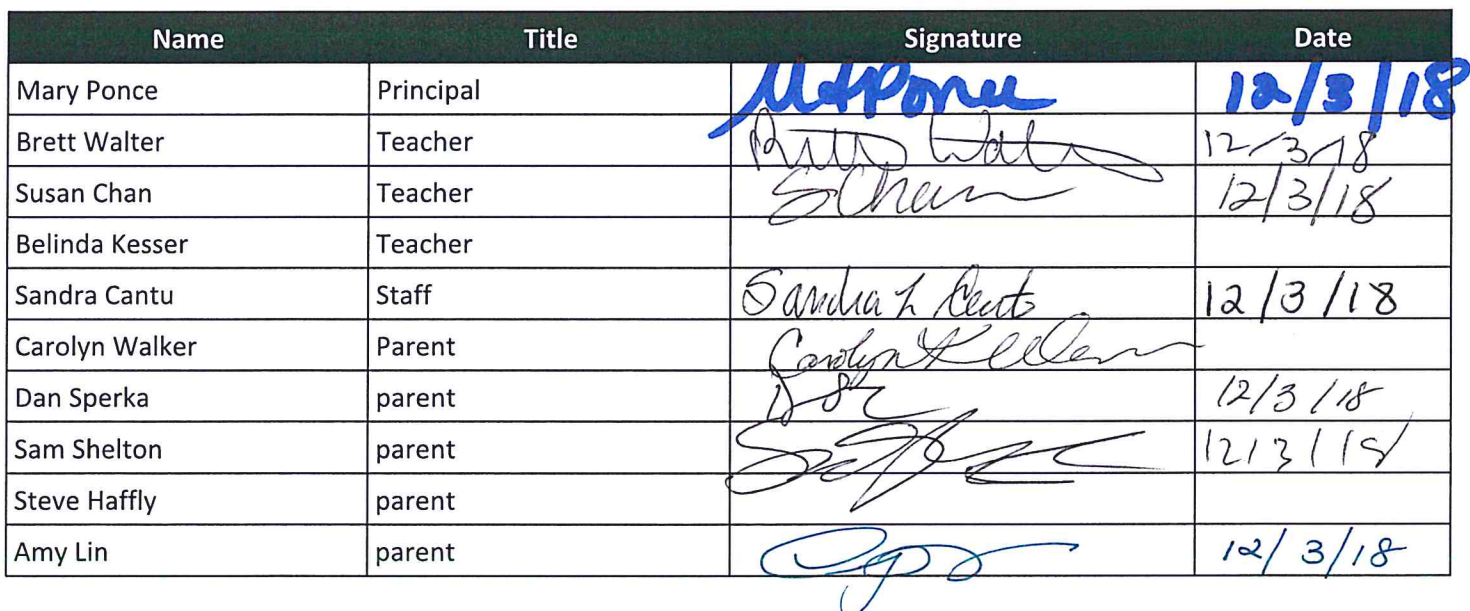 Name Title Signature Date
Mary Ponce Principal MAPonce 12/3/18
Brett Walter Teacher 12/3/18
Susan Chan Teacher SChan 12/3/18
Belinda Kesser Teacher
Sandra Cantu Staff Sandra L Cantu 12/3/18
Carolyn Walker Parent Carolyn
Dan Sperka parent 12/3/18
Sam Shelton parent 12/3/18
Steve Haffly parent
Amy Lin parent 12/3/18